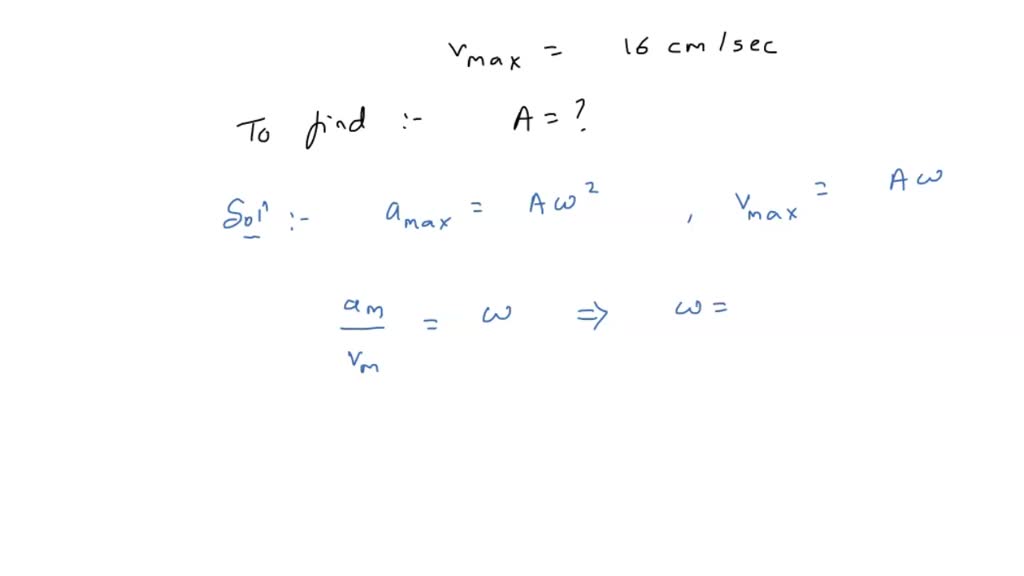 vmax = 16 cm/sec
To find :- A = ?
Solⁿ :- amax = Aω² , vmax = Aω
am/vm = ω ⇒ ω =